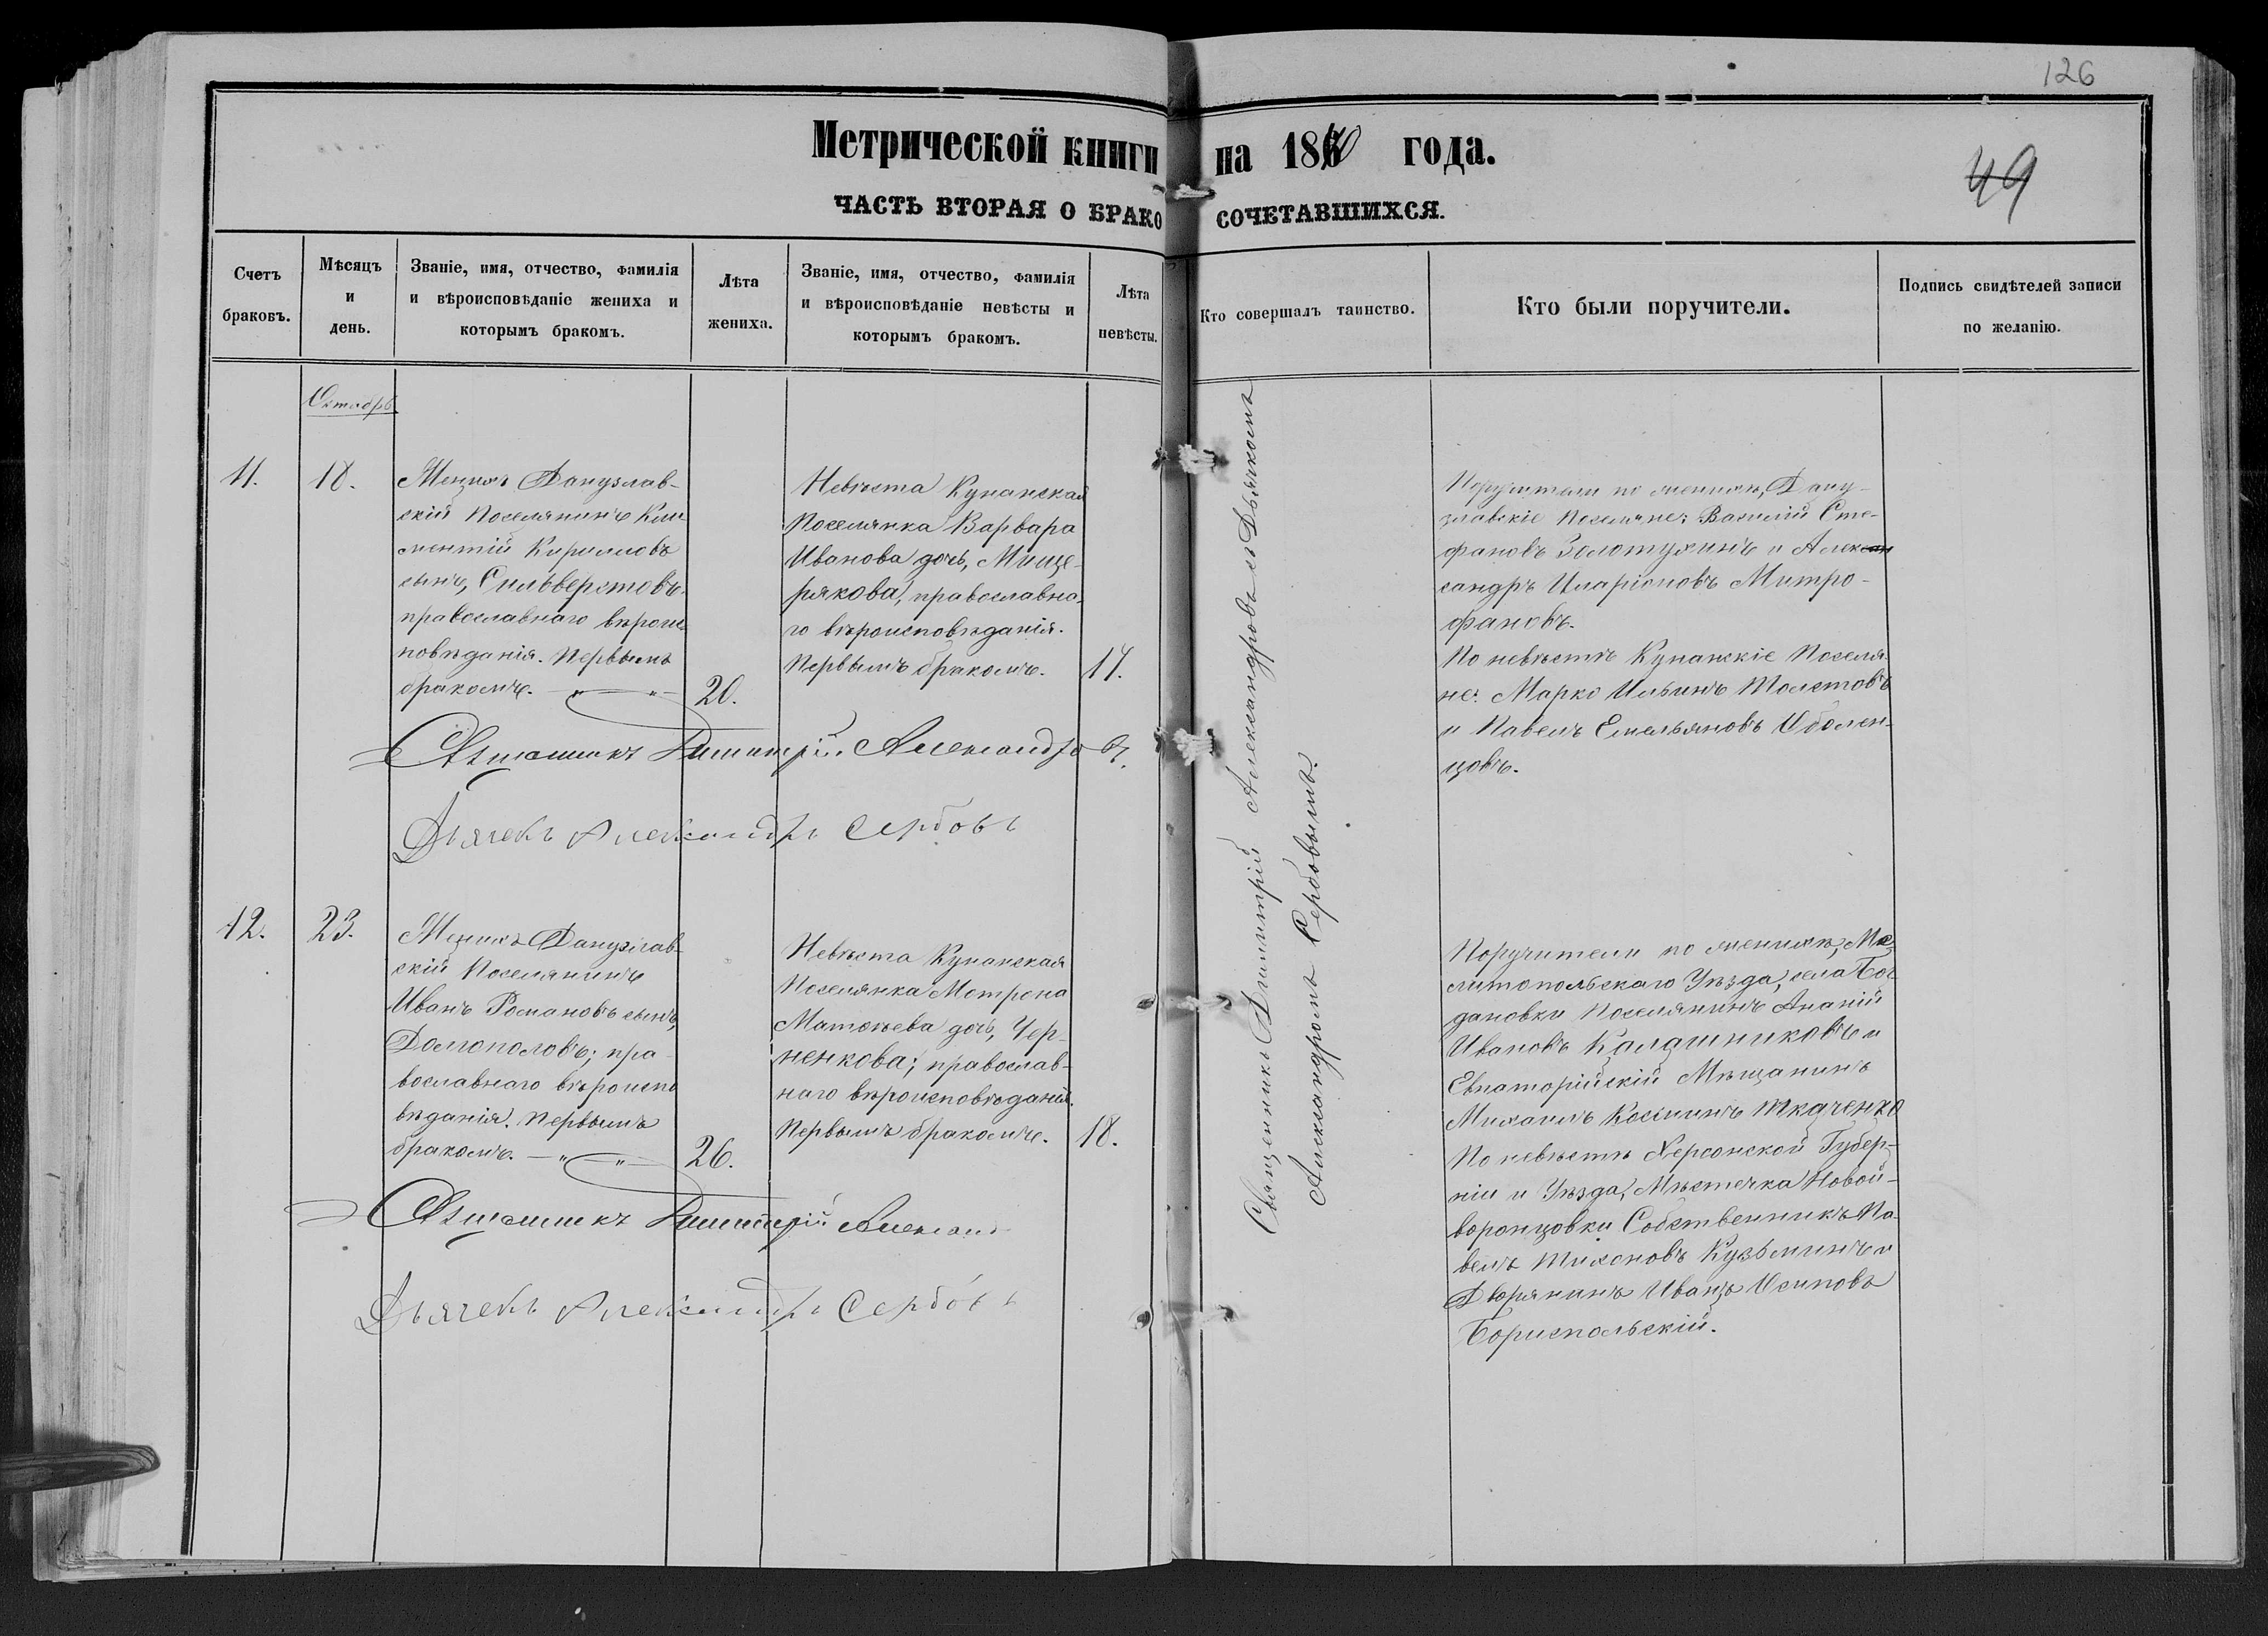 126
Метрической книги на 1870 года.
49
ЧАСТЬ ВТОРАЯ О БРАКОСОЧЕТАВШИХСЯ.
Счетъ браковъ.
Мѣсяцъ и день.
Званіе, имя, отчество, фамилія и вѣроисповѣданіе жениха и которымъ бракомъ.
Лѣта жениха.
Званіе, имя, отчество, фамилія и вѣроисповѣданіе невѣсты и которымъ бракомъ.
Лѣта невѣсты.
Кто совершалъ таинство.
Кто были поручители.
Подпись свидѣтелей записи по желанію.
Октябрь
11.
18.
Женихъ Данузлав-
скій Поселянинъ Кли-
ментій Кирилловъ
сынъ, Сильверстовъ.
православнаго вѣроис-
повѣданія. Первымъ
бракомъ.
20.
Невѣста Кунанская
Поселянка Варвара
Иванова дочь, Мище-
рякова, православна-
го вѣроисповѣданія.
Первымъ бракомъ.
17.
Священникъ Димитрій Александровъ.
Дьячекъ Александръ Сербовъ
Священникъ Димитрій Александровъ и Дьячкомъ
Александромъ Сербовымъ.
Поручители по женихѣ, Дану-
злавскіе Поселяне: Василій Сте-
фановъ Золотухинъ и Алексан
сандръ Иларіоновъ Митро-
фановъ.
По невѣстѣ Кунанскіе Поселя-
не: Марко Ильинъ Толстовъ
и Павелъ Емельяновъ Оболен-
цовъ.
12.
23.
Женихъ Данузлав-
скій Поселянинъ
Иванъ Романовъ сынъ,
Долгополовъ; пра-
вославнаго вѣроиспо
вѣданія. Первымъ
бракомъ.
26.
Невѣста Кунанская
Поселянка Мотрона
Матѳѣева дочь, Чер-
ненкова; православ-
наго вѣроисповѣданія.
Первымъ бракомъ.
18.
Священникъ Димитрій Александ
Дьячекъ Александръ Сербовъ
Поручители по женихѣ, Ме-
литопольскаго Уѣзда, села Бог
дановки Поселянинъ Ананій
Ивановъ Калашниковъ и
Евпаторійскій Мѣщанинъ
Михаилъ Козминъ Ткаченко
По невѣстѣ Херсонской Губер-
ніи и Уѣзда, Мѣстечка Новой-
воронцовки Собственникъ Па-
велъ Тихоновъ Кузьминъ и
Дворянинъ Иванъ Осиповъ
Бориспольскій.